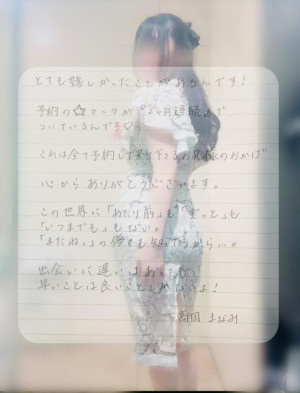 とても嬉しかったことがあるんです!
予約の☆マークが『2ヶ月連続』で
ついているんです♡
これは全て予約して下さるお兄様のおかげ
心からありがとうございます。
この世界に「あたり前」も「ずっと」も
「いつまでも」もない。
「またね。」の
出会いに遅いはあっても
早いことは良いことしかないよ!
まなみ